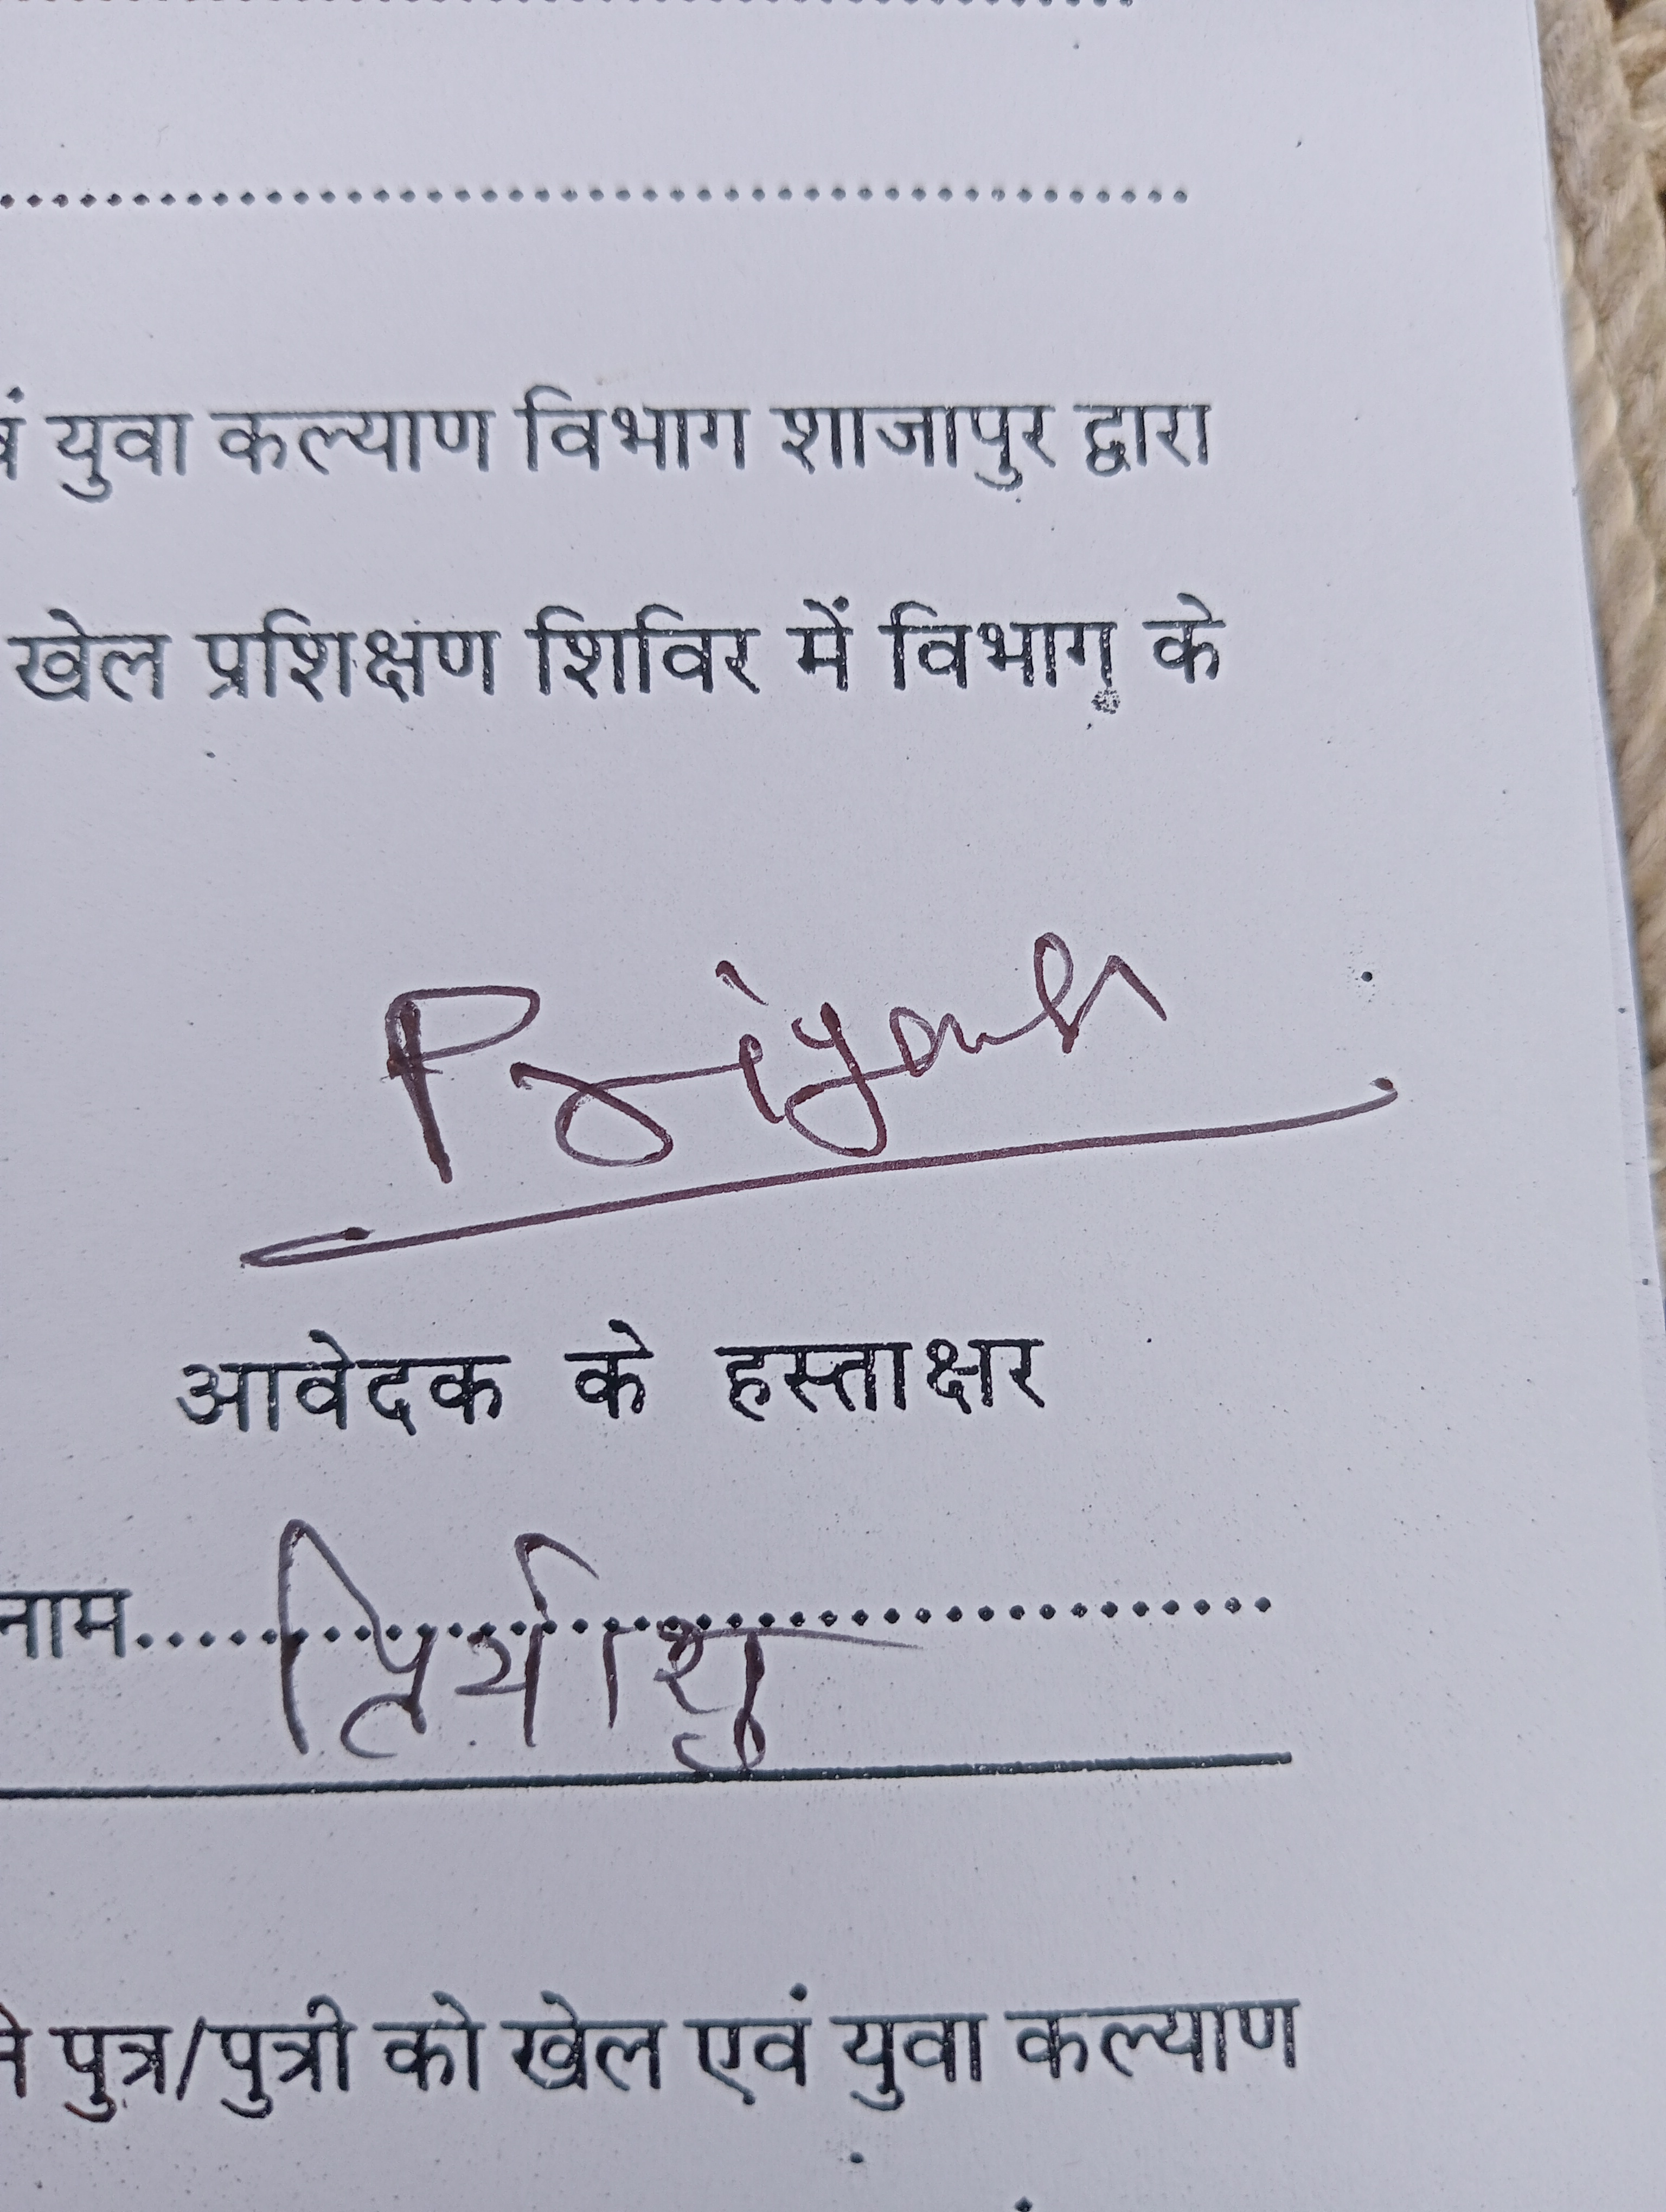 युवा कल्याण विभाग शाजापुर द्वारा
खेल प्रशिक्षण शिविर में विभाग के
Priyansh
आवेदक के हस्ताक्षर
नाम....................
पुत्र/पुत्री को खेल एवं युवा कल्याण